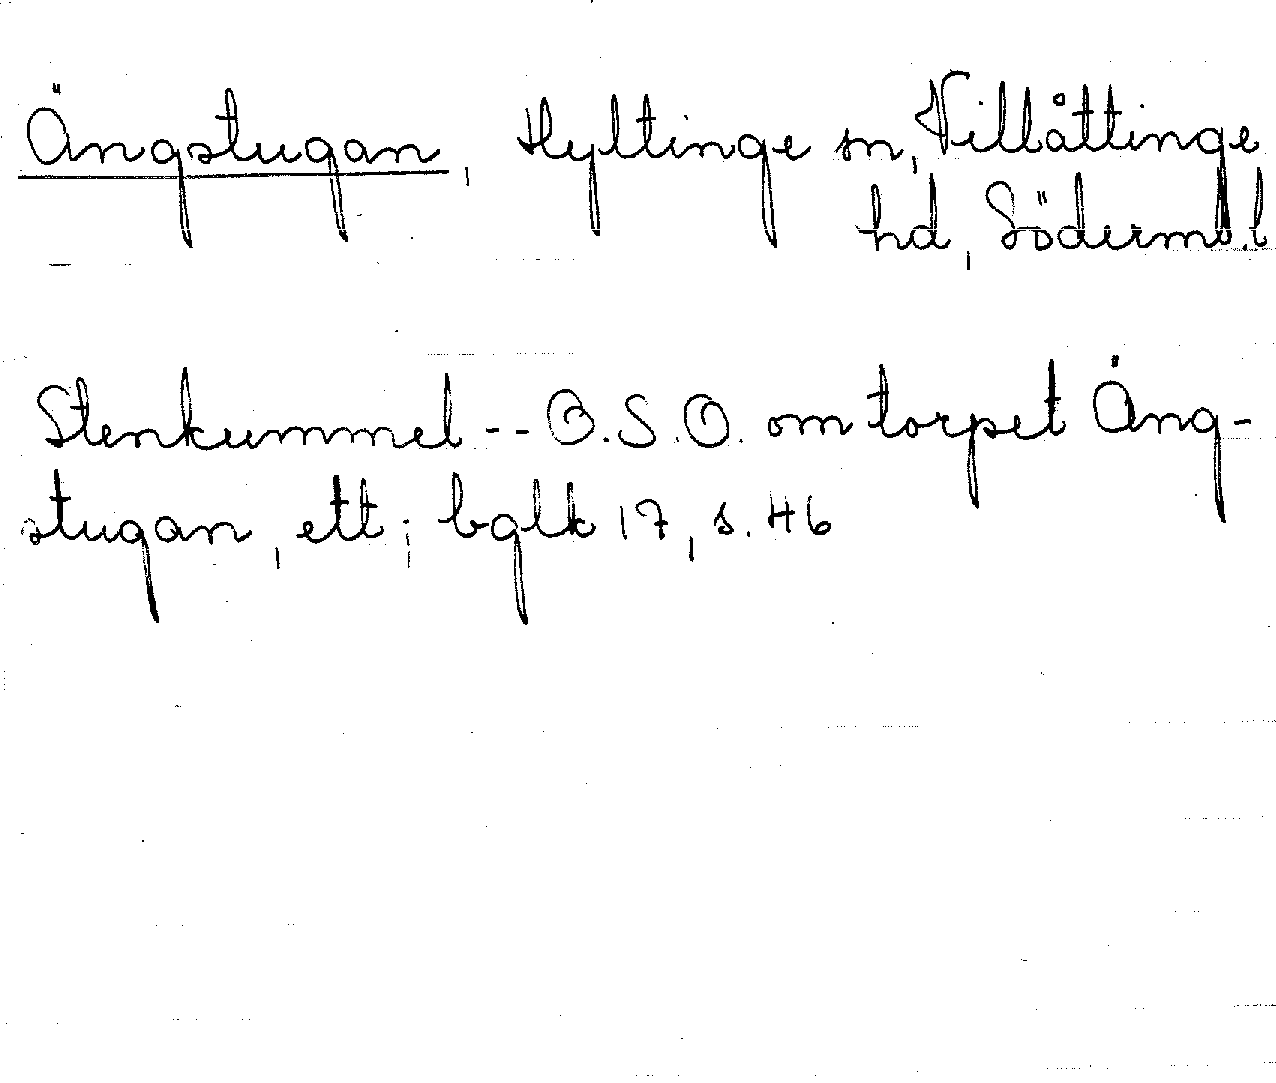 Ängstugan, Hyltinge sn, Villåttinge
hd, Söderm.l
Stenkummel -- O.S.O. om torpet Äng-
stugan, ett; bglk 17, s. 46